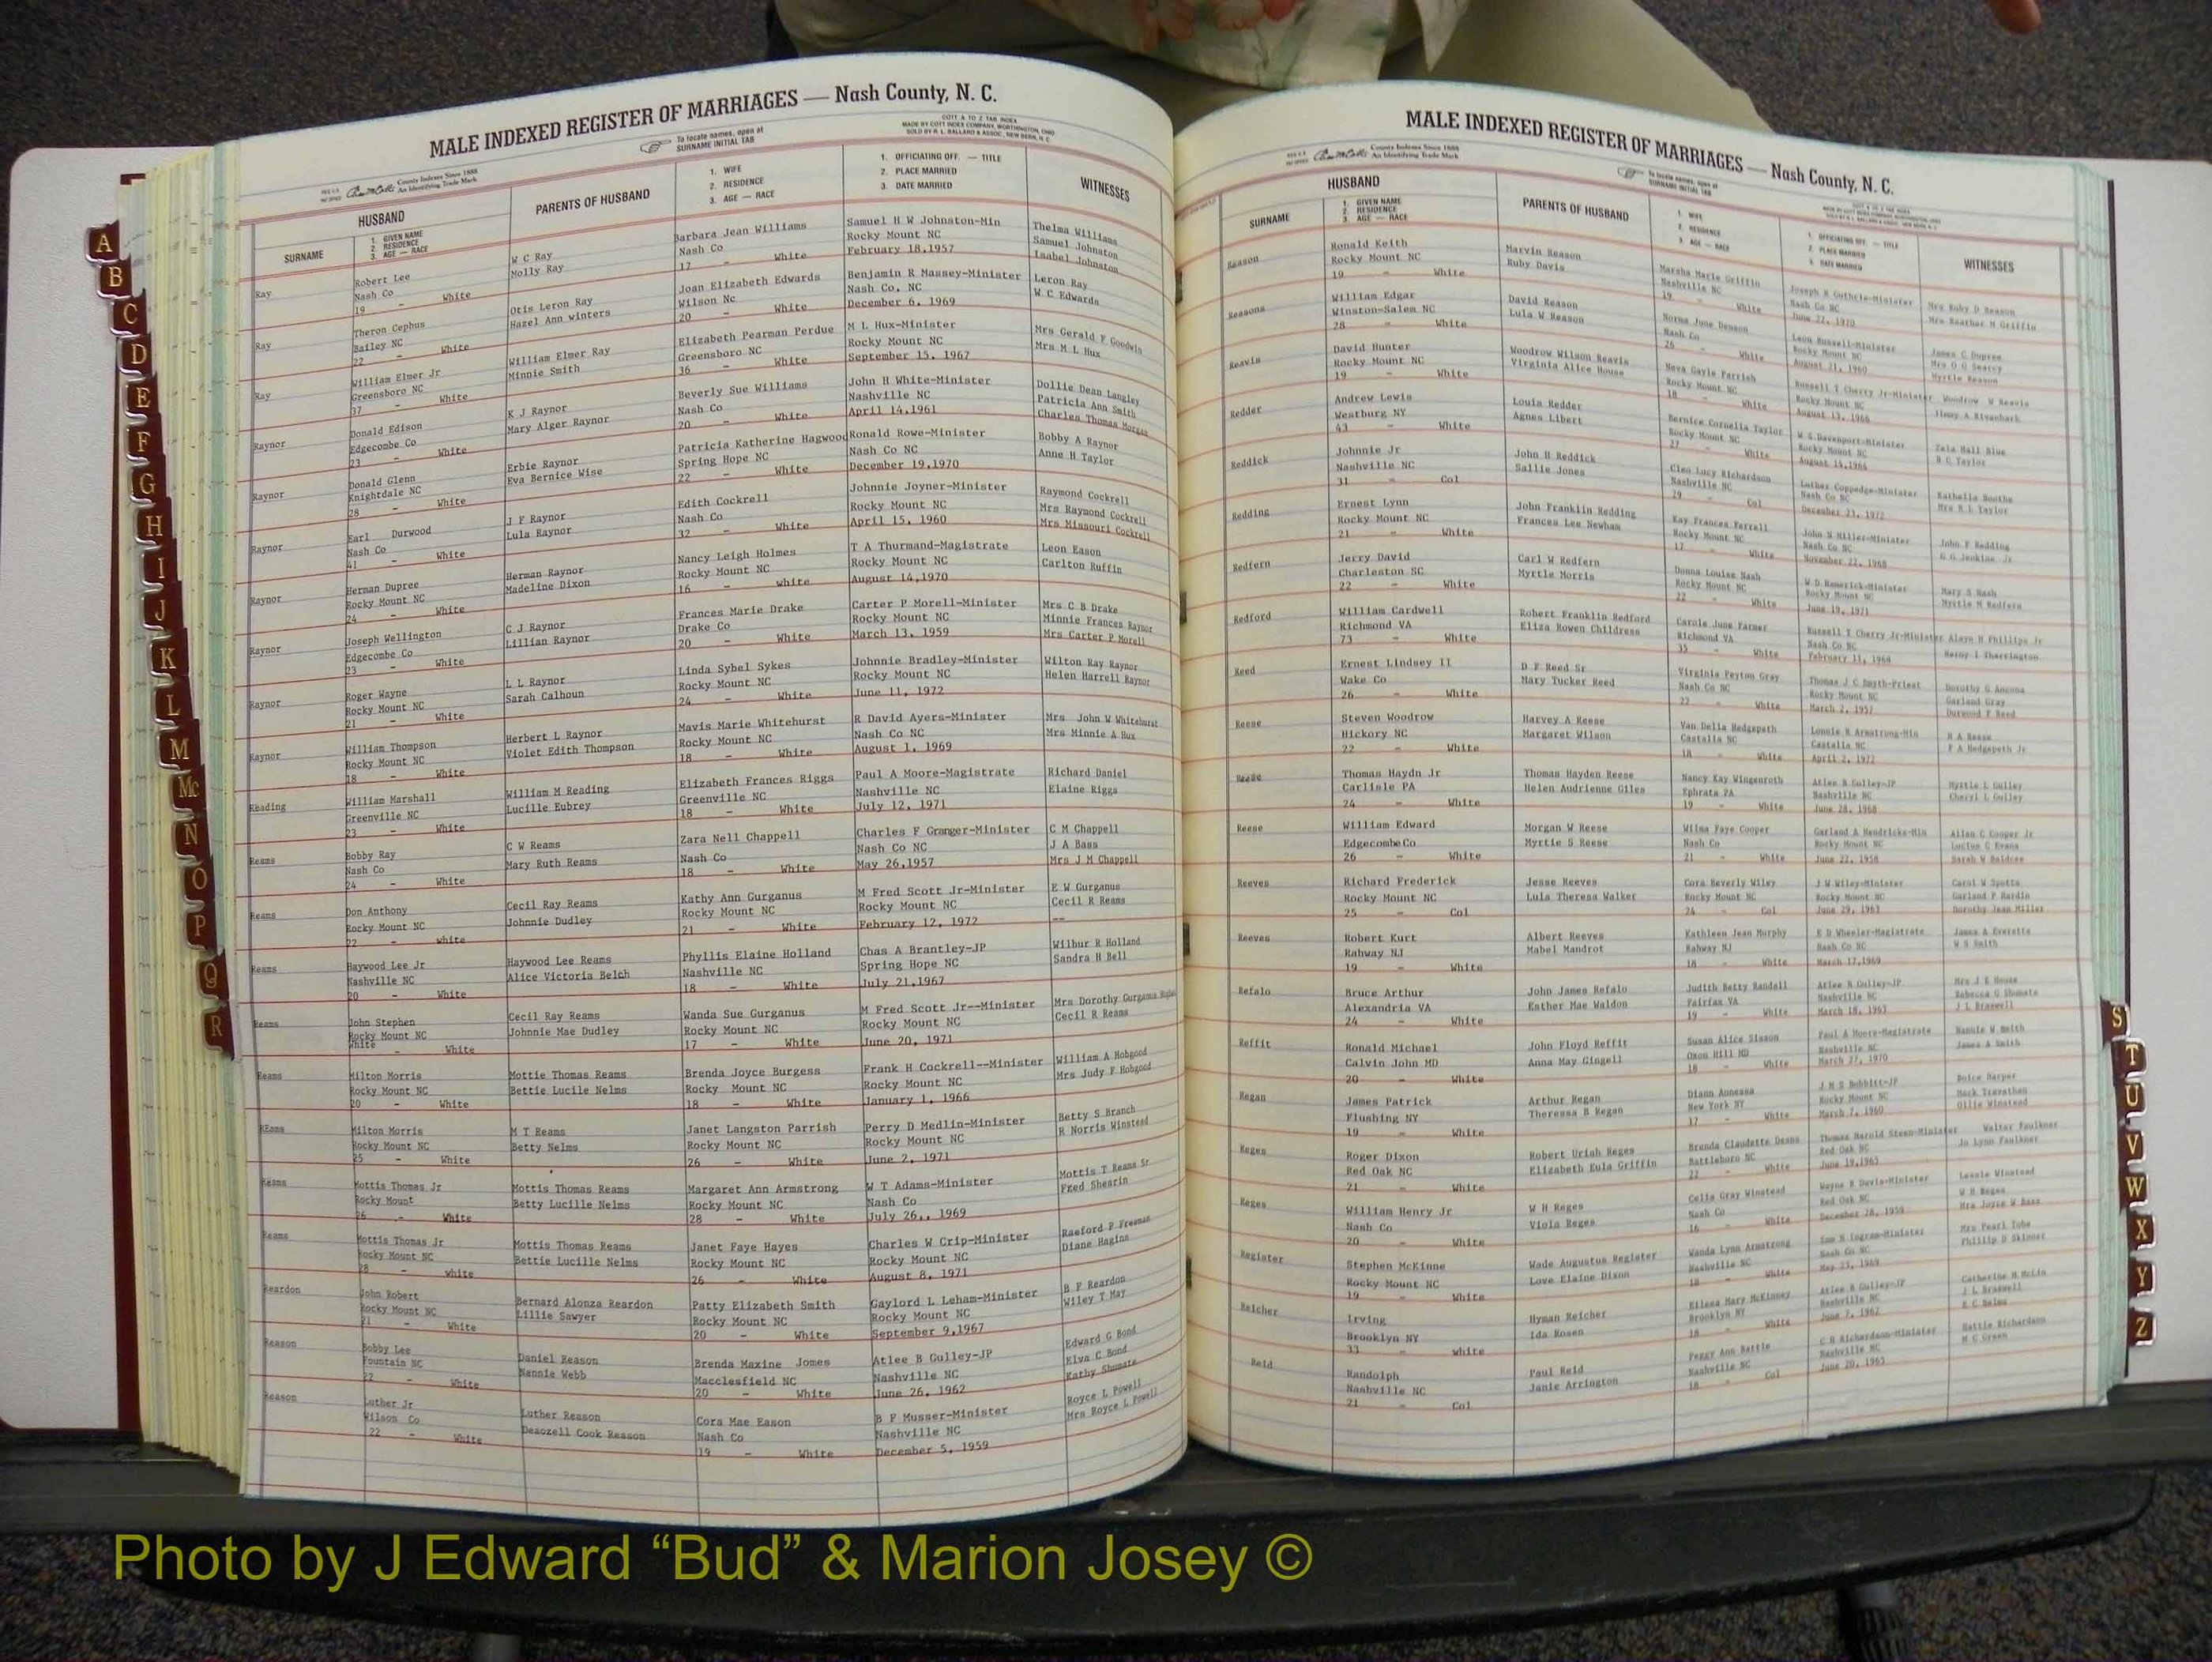 MALE INDEXED REGISTER OF MARRIAGES — Nash County, N. C.
To locate names, open at
SURNAME INITIAL TAB
COTT A TO Z TAB INDEX
MADE BY COTT INDEX COMPANY, WORTHINGTON, OHIO
SOLD BY R. L. BALLARD & ASSOC., NEW BERN, N. C.
County Indexes Since 1888
An Identifying Trade Mark
HUSBAND
SURNAME
1. GIVEN NAME
2. RESIDENCE
3. AGE — RACE
PARENTS OF HUSBAND
1. WIFE
2. RESIDENCE
3. AGE — RACE
1. OFFICIATING OFF. — TITLE
2. PLACE MARRIED
3. DATE MARRIED
WITNESSES
Ray Robert Lee W C Ray Barbara Jean Williams Samuel H W Johnston-Min Thelma Williams
Nash Co Molly Ray Nash Co Rocky Mount NC Samuel Johnston
19 - White 17 - White February 18,1957 Isabel Johnston
Ray Theron Cephus Otis Leron Ray Joan Elizabeth Edwards Benjamin R Massey-Minister Leron Ray
Bailey NC Hazel Ann winters Wilson Nc Nash Co. NC W C Edwards
22 - White 20 - White December 6, 1969
Ray William Elmer Jr William Elmer Ray Elizabeth Pearman Perdue M L Hux-Minister Mrs Gerald F Goodwin
Greensboro NC Minnie Smith Greensboro NC Rocky Mount NC Mrs M L Hux
37 - White 36 - White September 15, 1967
Raynor Donald Edison K J Raynor Beverly Sue Williams John H White-Minister Dollie Dean Langley
Edgecombe Co Mary Alger Raynor Nash Co Nashville NC Patricia Ann Smith
23 - White 20 - White April 14,1961 Charles Thomas Morgan
Raynor Donald Glenn Erbie Raynor Patricia Katherine Hagwood Ronald Rowe-Minister Bobby A Raynor
Knightdale NC Eva Bernice Wise Spring Hope NC Nash Co NC Anne H Taylor
28 - White 22 - White December 19,1970
Raynor Earl Durwood J F Raynor Edith Cockrell Johnnie Joyner-Minister Raymond Cockrell
Nash Co Lula Raynor Nash Co Rocky Mount NC Mrs Raymond Cockrell
41 - White 32 - White April 15, 1960 Mrs Missouri Cockrell
Raynor Herman Dupree Herman Raynor Nancy Leigh Holmes T A Thurmand-Magistrate Leon Eason
Rocky Mount NC Madeline Dixon Rocky Mount NC Rocky Mount NC Carlton Ruffin
24 - White 16 - white August 14,1970
Raynor Joseph Wellington C J Raynor Frances Marie Drake Carter P Morell-Minister Mrs C B Drake
Edgecombe Co Lillian Raynor Drake Co Rocky Mount NC Minnie Frances Raynor
23 - White 20 - White March 13, 1959 Mrs Carter P Morell
Raynor Roger Wayne L L Raynor Linda Sybel Sykes Johnnie Bradley-Minister Wilton Ray Raynor
Rocky Mount NC Sarah Calhoun Rocky Mount NC Rocky Mount NC Helen Harrell Raynor
21 - White 24 - White June 11, 1972
Raynor William Thompson Herbert L Raynor Mavis Marie Whitehurst R David Ayers-Minister Mrs John W Whitehurst
Rocky Mount NC Violet Edith Thompson Rocky Mount NC Nash Co NC Mrs Minnie A Hux
18 - White 18 - White August 1, 1969
Reading William Marshall William M Reading Elizabeth Frances Riggs Paul A Moore-Magistrate Richard Daniel
Greenville NC Lucille Eubrey Greenville NC Nashville NC Elaine Riggs
23 - White 18 - White July 12, 1971
Reams Bobby Ray C W Reams Zara Nell Chappell Charles F Granger-Minister C M Chappell
Nash Co Mary Ruth Reams Nash Co Nash Co NC J A Bass
24 - White 18 - White May 26,1957 Mrs J M Chappell
Reams Don Anthony Cecil Ray Reams Kathy Ann Gurganus M Fred Scott Jr-Minister E W Gurganus
Rocky Mount NC Johnnie Dudley Rocky Mount NC Rocky Mount NC Cecil R Reams
22 - white 21 - White February 12, 1972 --
Reams Haywood Lee Jr Haywood Lee Reams Phyllis Elaine Holland Chas A Brantley-JP Wilbur R Holland
Nashville NC Alice Victoria Belch Nashville NC Spring Hope NC Sandra H Bell
20 - White 18 - White July 21,1967
Reams John Stephen Cecil Ray Reams Wanda Sue Gurganus M Fred Scott Jr--Minister Mrs Dorothy Gurganus
Rocky Mount NC Johnnie Mae Dudley Rocky Mount NC Rocky Mount NC Cecil R Reams
White - White 17 - White June 20, 1971
Reams Milton Morris Mottie Thomas Reams Brenda Joyce Burgess Frank H Cockrell--Minister William A Hobgood
Rocky Mount NC Bettie Lucile Nelms Rocky Mount NC Rocky Mount NC Mrs Judy F Hobgood
20 - White 18 - White January 1, 1966
REams Milton Morris M T Reams Janet Langston Parrish Perry D Medlin-Minister Betty S Branch
Rocky Mount NC Betty Nelms Rocky Mount NC Rocky Mount NC R Norris Winstead
25 - White 26 - White June 2, 1971
Reams Mottis Thomas Jr Mottis Thomas Reams Margaret Ann Armstrong W T Adams-Minister Mottis T Reams Sr
Rocky Mount Betty Lucille Nelms Rocky Mount NC Nash Co Fred Shearin
26 - White 28 - White July 26,, 1969
Reams Mottis Thomas Jr Mottis Thomas Reams Janet Faye Hayes Charles W Crip-Minister Raeford P Freeman
Rocky Mount NC Bettie Lucille Nelms Rocky Mount NC Rocky Mount NC Diane Hagins
28 - white 26 - White August 8, 1971
Reardon John Robert Bernard Alonza Reardon Patty Elizabeth Smith Gaylord L Leham-Minister B F Reardon
Rocky Mount NC Lillie Sawyer Rocky Mount NC Rocky Mount NC Wiley T May
21 - White 20 - White September 9,1967
Reason Bobby Lee Daniel Reason Brenda Maxine Jomes Atlee B Gulley-JP Edward G Bond
Fountain NC Nannie Webb Macclesfield NC Nashville NC Elva C Bond
22 - White 20 - White June 26, 1962 Kathy Shumate
Reason Luther Jr Luther Reason Cora Mae Eason B F Musser-Minister Royce L Powell
Wilson Co Deaozell Cook Reason Nash Co Nashville NC Mrs Royce L Powell
22 - White 19 - White December 5, 1959
MALE INDEXED REGISTER OF MARRIAGES — Nash County, N. C.
County Indexes Since 1888
An Identifying Trade Mark
To locate names, open at
SURNAME INITIAL TAB
HUSBAND
SURNAME
1. GIVEN NAME
2. RESIDENCE
3. AGE — RACE
PARENTS OF HUSBAND
1. WIFE
2. RESIDENCE
3. AGE — RACE
1. OFFICIATING OFF. — TITLE
2. PLACE MARRIED
3. DATE MARRIED
WITNESSES
Reason Ronald Keith Marvin Reason Marsha Marie Griffin Joseph R Guthrie-Minister Mrs Ruby D Reason
Rocky Mount NC Ruby Davis Nashville NC Nash Co NC Mrs Heather H Griffin
19 - White 19 - White June 27, 1970
Reasons William Edgar David Reason Norma June Denson Leon Russell-Minister James C Dupree
Winston-Salem NC Lula W Reason Nash Co Rocky Mount NC Mrs O G Searcy
28 - White 26 - White August 21, 1960 Myrtle Reason
Reavis David Hunter Woodrow Wilson Reavis Neva Gayle Parrish Russell T Cherry Jr-Minister Woodrow W Reavis
Rocky Mount NC Virginia Alice House Rocky Mount NC Rocky Mount NC Jimmy A Rivenbark
19 - White 18 - White August 13, 1966
Redder Andrew Lewis Louis Redder Bernice Cornelia Taylor W G Davenport-Minister Zela Hall Blue
Westburg NY Agnes Libert Rocky Mount NC Rocky Mount NC B C Taylor
43 - White 27 - White August 14,1966
Reddick Johnnie Jr John H Reddick Cleo Lucy Richardson Luther Coppedge-Minister Kathelia Boothe
Nashville NC Sallie Jones Nashville NC Nash Co NC Mrs R L Taylor
31 - Col 29 - Col December 23, 1972
Redding Ernest Lynn John Franklin Redding Kay Frances Ferrell John S Miller-Minister John F Redding
Rocky Mount NC Frances Lee Newham Rocky Mount NC Nash Co NC G G Jenkins Jr
21 - White 17 - White November 22, 1968
Redfern Jerry David Carl W Redfern Donna Louise Nash W D Hamerick-Minister Mary S Nash
Charleston SC Myrtle Morris Rocky Mount NC Rocky Mount NC Myrtle M Redfern
22 - White 22 - White June 19, 1971
Redford William Cardwell Robert Franklin Redford Carole June Farmer Russell T Cherry Jr-Minister Aleyn H Phillips Jr
Richmond VA Eliza Rowen Childress Richmond VA Nash Co NC Tharrington
73 - White 35 - White February 11, 1968
Reed Ernest Lindsey II D F Reed Sr Virginia Peyton Gray Thomas J C Smyth-Priest Dorothy G Ancona
Wake Co Mary Tucker Reed Nash Co NC Rocky Mount NC Garland Gray
26 - White 22 - White March 2, 1957 Durwood F Reed
Reese Steven Woodrow Harvey A Reese Van Della Hedgepeth Lonnie R Armstrong-Min H A Reese
Hickory NC Margaret Wilson Castalia NC Castalia NC F A Hedgepeth Jr
22 - White 18 - White April 2, 1972
Reese Thomas Haydn Jr Thomas Hayden Reese Nancy Kay Wingenroth Atlee B Gulley-JP Myrtie L Gulley
Carlisle PA Helen Audrienne Giles Ephrata PA Nashville NC Cheryl L Gulley
24 - White 19 - White June 28, 1968
Reese William Edward Morgan W Reese Wilma Faye Cooper Garland A Hendricks-Min Allan C Cooper Jr
Edgecombe Co Myrtie S Reese Nash Co Rocky Mount NC Lucius G Evans
26 - White 21 - White June 22, 1958 Sarah W Baldree
Reeves Richard Frederick Jesse Reeves Cora Beverly Wiley J W Wiley-Minister Carol W Spotta
Rocky Mount NC Lula Theresa Walker Rocky Mount NC Rocky Mount NC Garland P Hardin
25 - Col 24 - Col June 29, 1963 Dorothy Jean Miller
Reeves Robert Kurt Albert Reeves Kathleen Jean Murphy E D Wheeler-Magistrate James A Everette
Rahway NJ Mabel Mandrot Rahway NJ Nash Co NC W S Smith
19 - White 18 - White March 17,1969
Refalo Bruce Arthur John James Refalo Judith Betty Randall Atlee B Gulley-JP Mrs J E House
Alexandria VA Esther Mae Waldon Fairfax VA Nashville NC Rebecca G Shumate
24 - White 19 - White March 18, 1963 J L Braswell
Reffit Ronald Michael John Floyd Reffit Susan Alice Sisson Paul A Moore-Magistrate Nannie W Smith
Calvin John MD Anna May Gingell Oxon Hill MD Nashville NC James A Smith
20 - White 18 - White March 27, 1970
Regan James Patrick Arthur Regan Diann Aunessa J M S Bobbitt-JP Boice Harper
Flushing NY Theressa B Regan New York NY Rocky Mount NC Mack Trevathan
19 - White 17 - White March 7, 1960 Ollie Winstead
Reges Roger Dixon Robert Uriah Reges Brenda Claudette Deans Thomas Harold Steen-Minister Walter Faulkner
Red Oak NC Elizabeth Eula Griffin Battleboro NC Red Oak NC Jo Lynn Faulkner
21 - White 22 - White June 19,1965
Reges William Henry Jr W H Reges Celia Gray Winstead Wayne B Davis-Minister Lessie Winstead
Nash Co Viola Reges Nash Co Red Oak NC W H Reges
20 - White 16 - White December 28, 1959 Mrs Joyce W Bass
Register Stephen McKinne Wade Augustus Register Wanda Lynn Armstrong Sam N Ingram-Minister Mrs Pearl Tobe
Rocky Mount NC Love Elaine Dixon Nashville NC Nash Co NC Phillip D Skinner
19 - White 18 - White May 23, 1969
Reicher Irving Hyman Reicher Eileen Mary McKinney Atlee B Gulley-JP
Brooklyn NY Ida Rosen Brooklyn NY Nashville NC J L Braswell
33 - white 18 - White June 7, 1962
Reid Randolph Paul Reid Peggy Ann Battle C B Richardson-Minister Hattie Richardson
Nashville NC Janie Arrington Nashville NC Nashville NC M C Green
21 - Col 18 - Col June 20, 1965
A
B
C
D
E
F
G
H
I
J
K
L
M
Mc
N
O
P
Q
R
S
T
U
V
W
X
Y
Z
Photo by J Edward “Bud” & Marion Josey ©